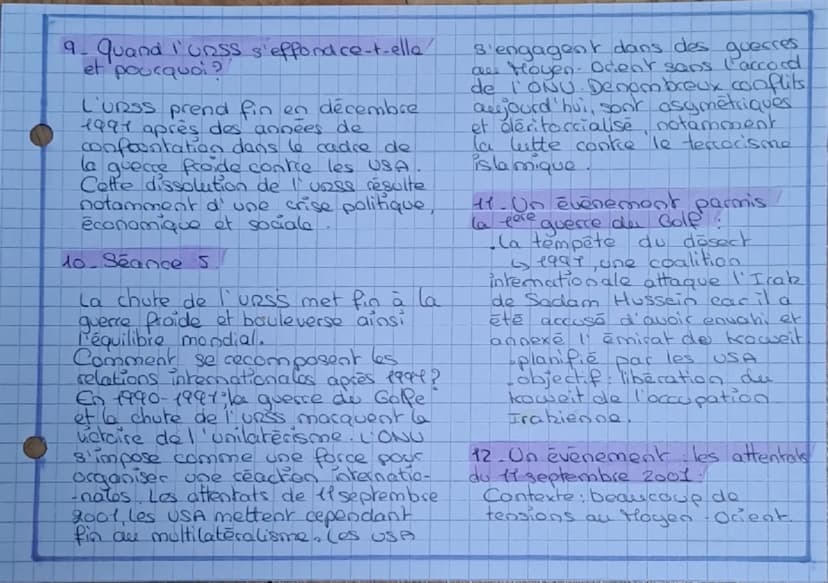 9. Quand l'URSS s'effondre-t-elle
et pourquoi?
L'URSS prend fin en décembre
1991 après des années de
confrontation dans le cadre de
la guerre froide contre les USA.
Cette dissolution de l'URSS résulte
notamment d'une crise politique,
économique et sociale.
10. Séance 5
La chute de l'URSS met fin à la
guerre froide et bouleverse ainsi
l'équilibre mondial.
Comment se recomposent les
relations internationales après 1991?
En 1990-1991, la guerre du Golfe
et la chute de l'URSS marquent la
victoire de l'unilatérisme. L'ONU
s'impose comme une force pour
organiser une réaction internatio-
-nales. Les attentats de 11 septembre
2001, les USA mettent cependant
fin au multilatéralisme. Les USA
s'engagent dans des guerres
au Moyen-Orient sans l'accord
de l'ONU. De nombreux conflits
aujourd'hui, sont asymétriques
et déritorrialisé, notamment
la lutte contre le terrorisme
islamique.
11. Un événement parmis
la 1ère guerre du Golf :
.La tempête du désert
↳ 1991, une coalition
internationale attaque l'Irak
de Sadam Hussein car il a
été accusé d'avoir envahi et
annexé l'émirat de Koweit
.planifié par les USA
.objectif : libération du
Koweit de l'occupation
Irakienne.
12. Un événement : les attentats
du 11 septembre 2001 :
Contexte : beaucoup de
tensions au Moyen-Orient